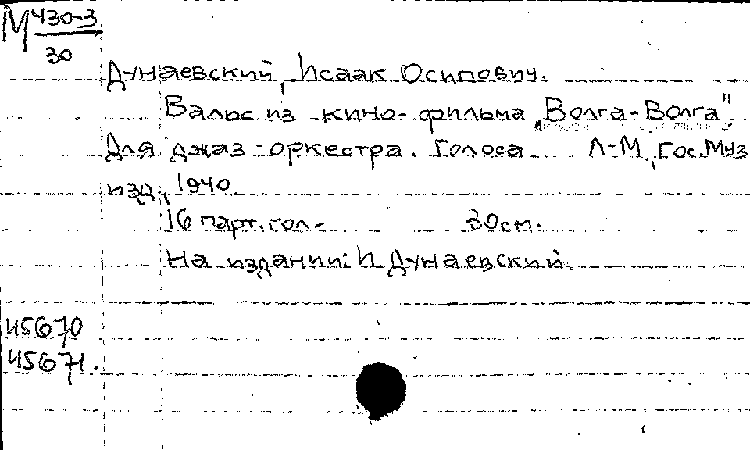 М 430-3
30
Дунаевский, Исаак Осипович.
Вальс из кино-фильма „Волга-Волга"
Для джаз-оркестра. Голоса Л-М, Гос. Муз
изд, 1940
16 парт. гол- 30см.
На издании: И Дунаевский.
45670
45671.